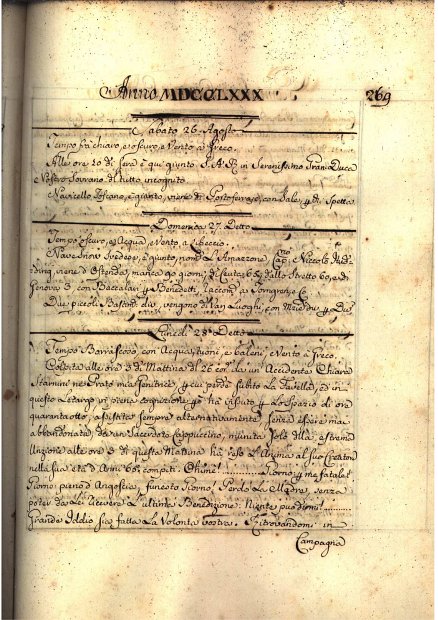 Anno MDCCLXXX
269
Sabato 26. Agosto
Tempo frà chiaro, e oscuro, e Vento a Greco.
Alle ore 10 di Sera è quì giunto S. A. R. in Serenissimo Gran Duca
Nostro Sovrano di tutto incognito.
Navicello Toscano, è giunto, viene di Portoferrajo, con Sale, p. di Spetta
Domenica 27. Detto
Tempo oscuro, e Acqua, e Vento a Libeccio.
Nave Snow Svedese, è giunto, nom. L'Amazzone Cap.no Niccolò
viene d'Ostenda, manca 90 giorni, di Cautez 65, dallo Stretto 60, e di
Genova 3 con Baccalari, p. Benedetti, raccom. a
Due piccoli Bastim. div. vengono di Luoghi, con p. Div.
Lunedì 28. Detto
Tempo Borrascoso, con Acqua, tuoni, e baleni, Vento a Greco.
Colpita alle ore 3 di Mattina del 26 cor. da un Accidente Chiara
Stamini ne Prato mia Genitrice, p. cui perdè subito La favella, ed in
questo Letargo in piena cognizione p. hà vissuto p. Lo Spazio di ore
quarantotto, assistita sempre alternativamente senza essere mai
abbandonata, da un Sacerdote Cappuccino, munita solo dell'estrema
Unzione alle ore 3 di questa Mattina hà reso L'Anima al suo Creatore
nella sua età d'Anni 60 compiti. Ohimè! ......... Giorno p. me fatale!
Giorno pieno d'Angostia, funesto Giorno! Perdo La Madre senza
poter da Lei ricevere L'ultima Benedizione: Niente può dirmi! .........
Grande Iddio sia fatta La Volontà vostra. Ritrovandomi in
Campagna